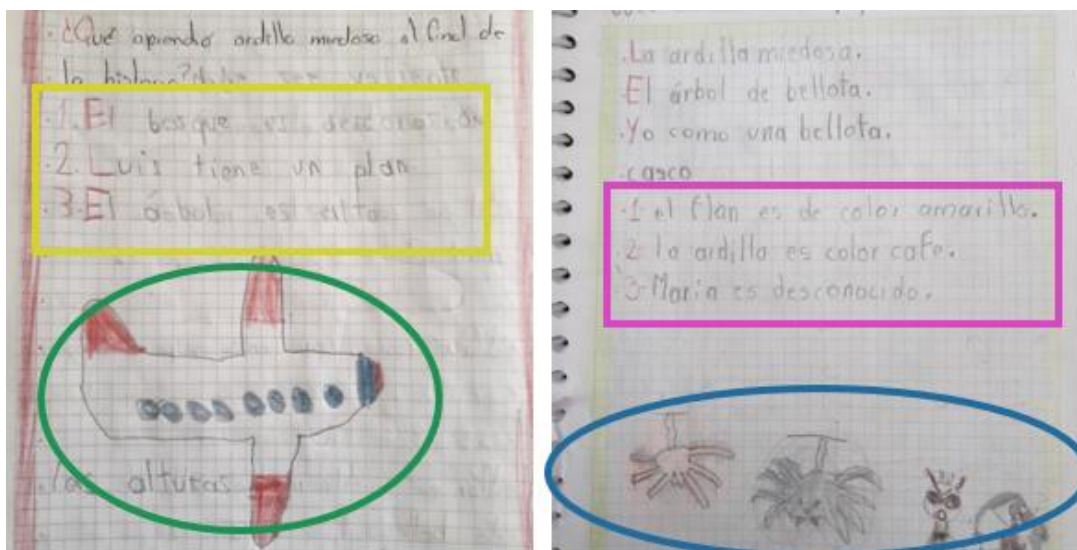 ·¿Qué aprendió ardilla miedosa al final de
la historia? debe ser valiente
·1. El bosque es desconocido
·2. Luis tiene un plan
·3. El árbol es alto
·las alturas
·La ardilla miedosa.
·El árbol de bellota.
·Yo como una bellota.
·casco
·1- el flan es de color amarillo.
·2- la ardilla es color cafe.
·3- Maria es desconocido.